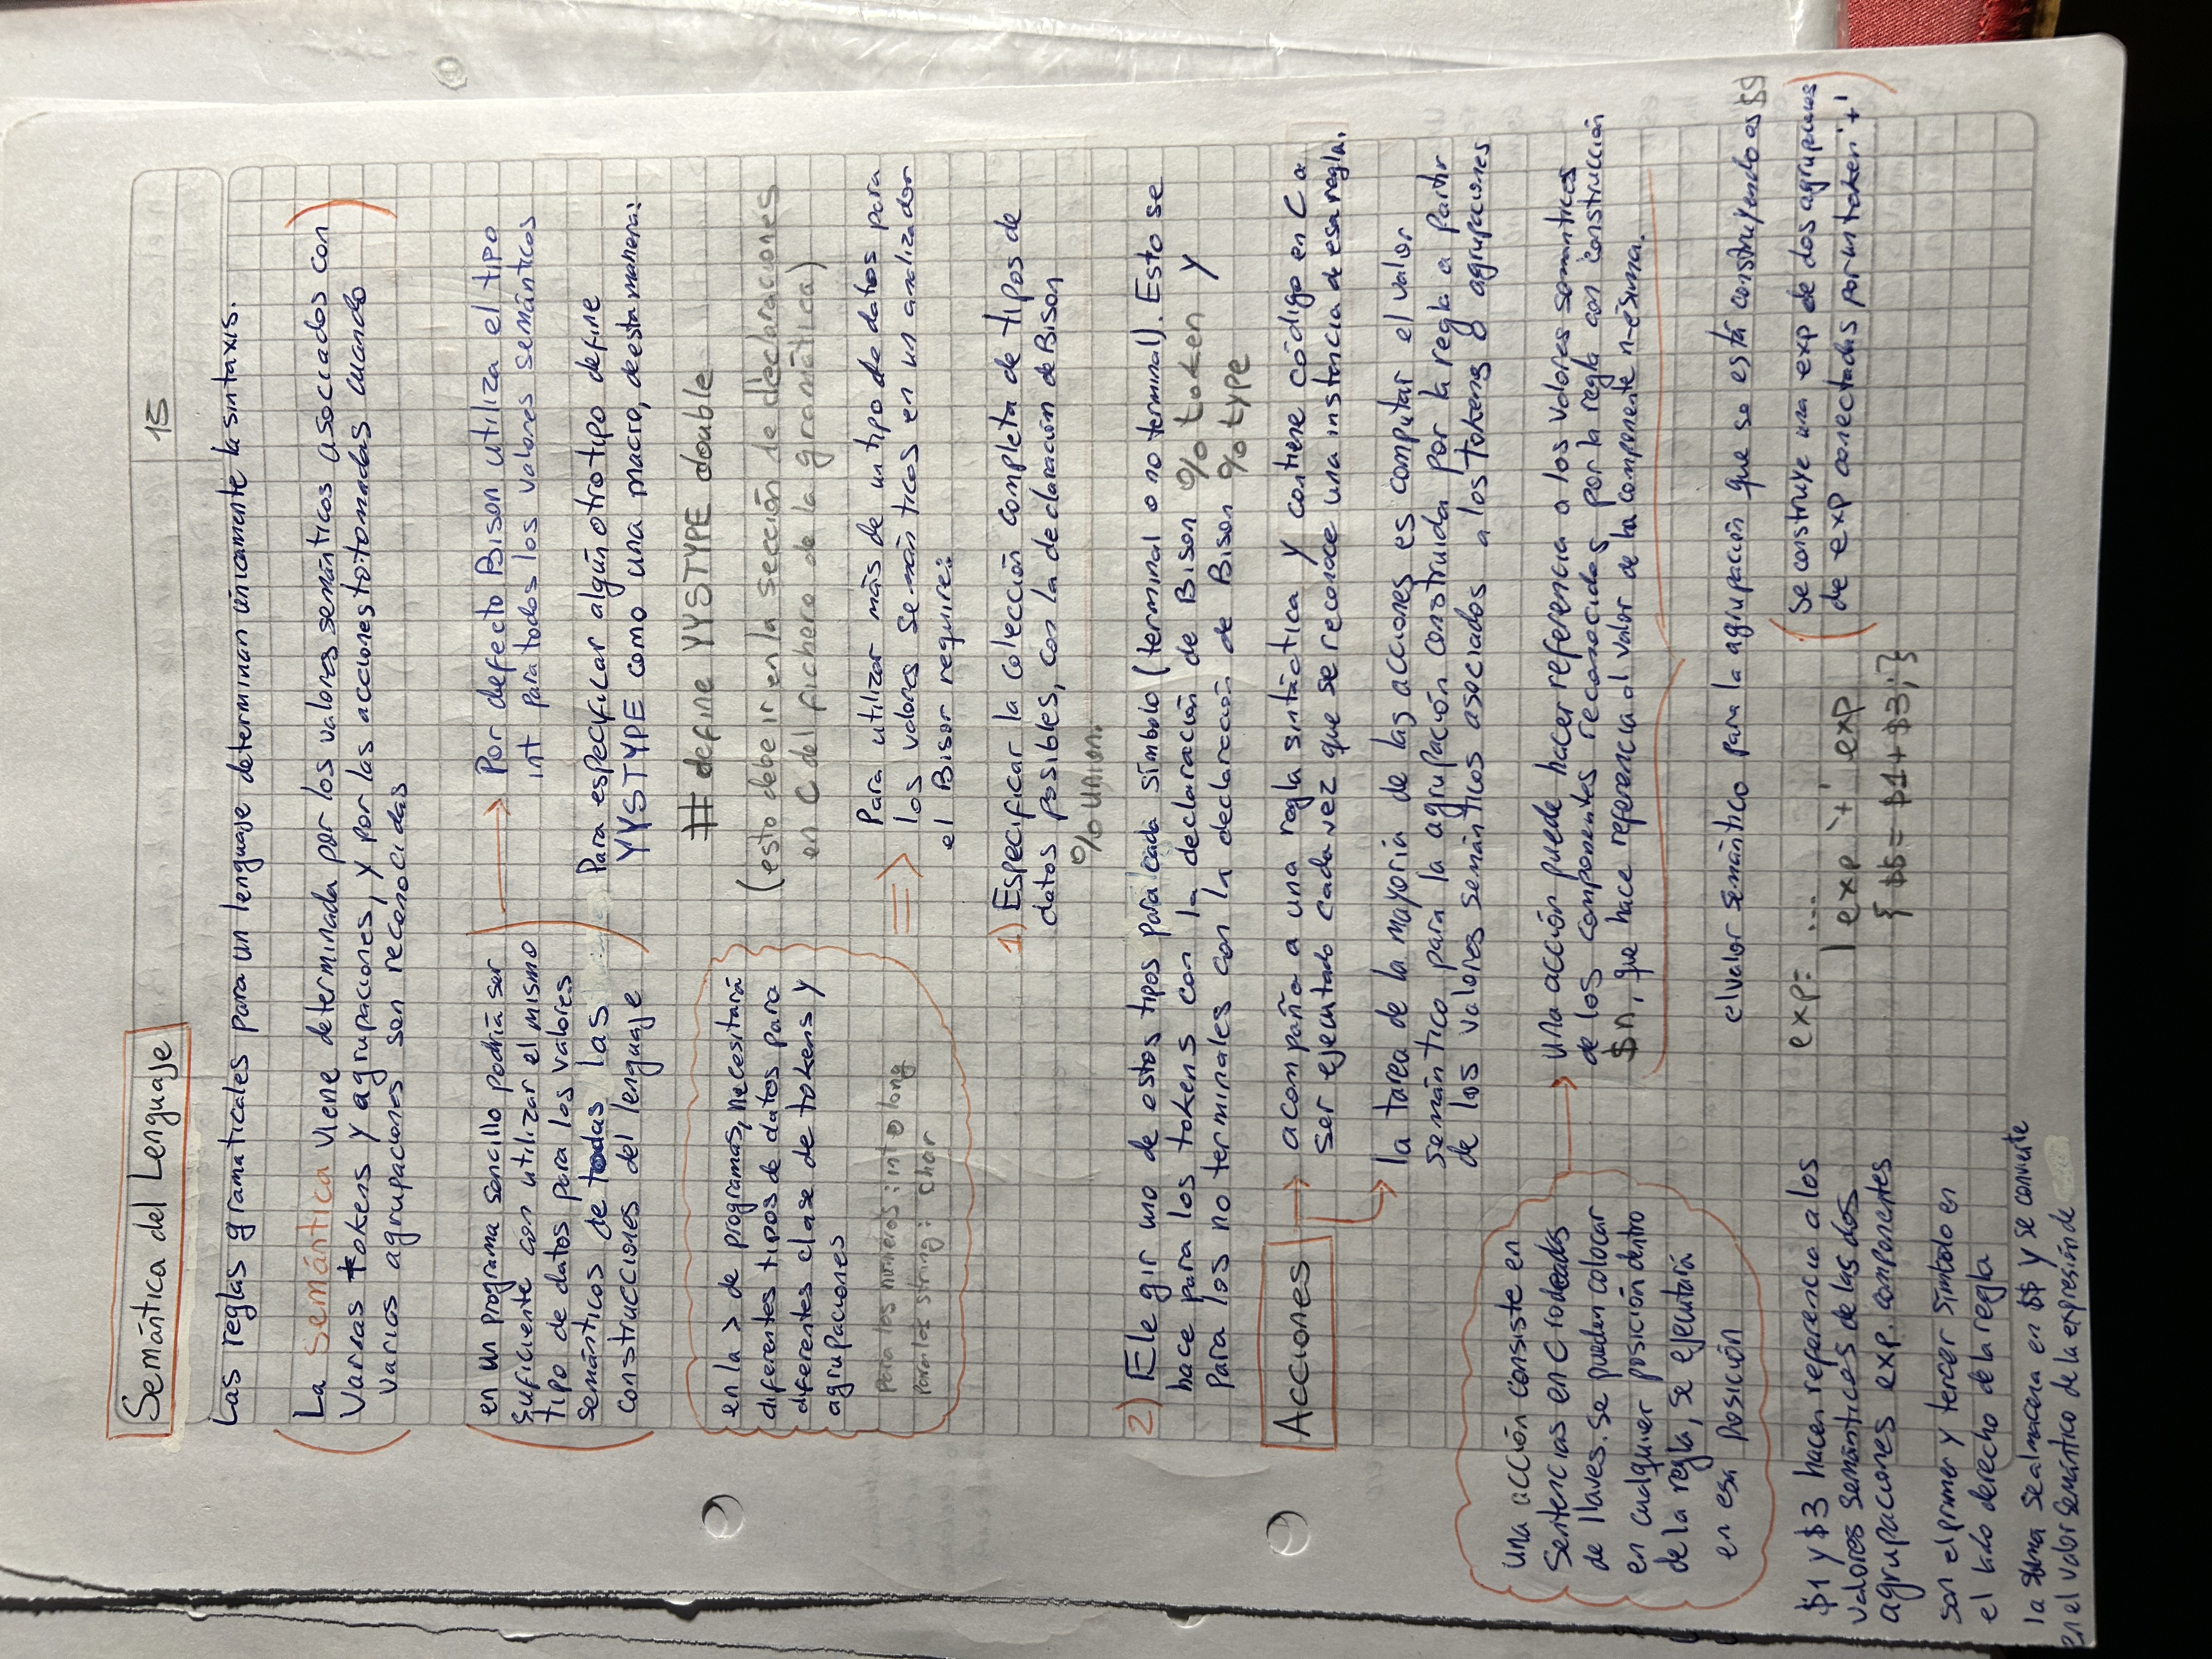 Semántica del Lenguaje
15
Las reglas gramaticales para un lenguaje determinan únicamente la sintaxis.
La semántica viene determinada por los valores semánticos asociados con
varias tokens y agrupaciones, y por las acciones totomadas cuando
varias agrupaciones son reconocidas
en un programa sencillo podría ser
suficiente con utilizar el mismo
tipo de datos para los valores
semánticos de todas las
construcciones del lenguaje
→ Por defecto Bison utiliza el tipo
int para todos los valores semánticos
Para especificar algún otro tipo define
YYSTYPE como una macro, de esta manera:
# define YYSTYPE double
(esto debe ir en la sección de declaraciones
en C del fichero de la gramática)
en la > de programas, necesitará
diferentes tipos de datos para
diferentes clase de tokens y
agrupaciones
para los números: int o long
para los string: char
⇒ Para utilizar más de un tipo de datos para
los valores semánticos en un analizador
el Bison require:
1) Especificar la colección completa de tipos de
datos posibles, con la declaración de Bison
% union.
2) Elegir uno de estos tipos para cada símbolo (terminal o no terminal). Esto se
hace para los tokens con la declaración de Bison % token y
para los no terminales con la declaración de Bison % type
Acciones
→ acompaña a una regla sintáctica y contiene código en C a
ser ejecutado cada vez que se reconoce una instancia de esa regla.
→ la tarea de la mayoría de las acciones es computar el valor
semántico para la agrupación construida por la regla a partir
de los valores semánticos asociados a los tokens o agrupaciones
una acción consiste en
sentencias en C rodeadas
de llaves. se pueden colocar
en cualquier posición dentro
de la regla, se ejecutará
en esa posición
→ una acción puede hacer referencia a los valores semánticos
de los componentes reconocidos por la regla con construcción
$n, que hace referencia al valor de la componente n-ésima.
el valor semántico para la agrupación que se está construyendo es $$
exp: ...
| exp '+' exp
{ $$ = $1 + $3; }
(se construye una exp de dos agrupaciones
de exp conectadas por un token '+')
$1 y $3 hacen referencia a los
valores semánticos de las dos
agrupaciones exp. componentes
son el primer y tercer símbolo en
el lado derecho de la regla
la suma se almacena en $$ y se convierte
en el valor semántico de la expresión de